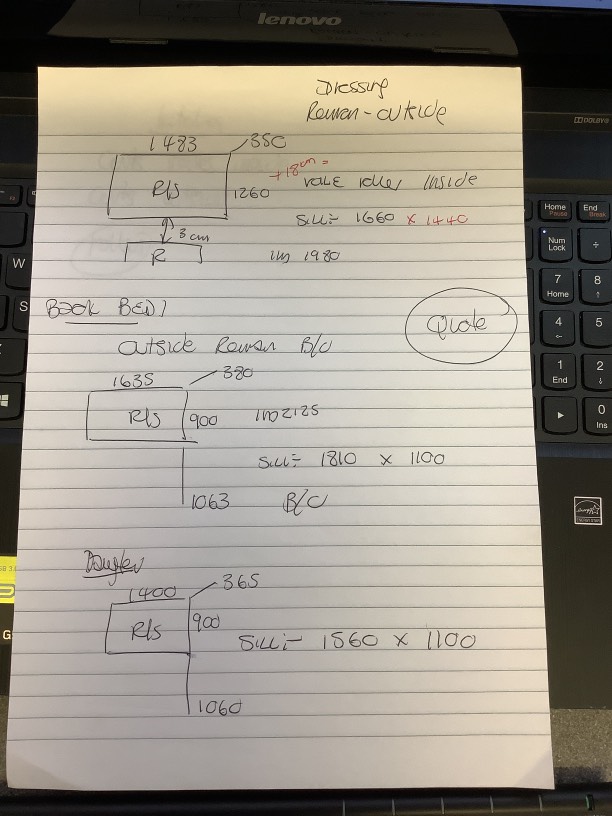 lenovo
DOLBY
Dressing
Roman - outside
1483
350
+18cm =
R/S
1260
roller inside
Sill:- 1660 x 1440
3cm
R
1980
Home
Pause
End
Break
Num
Lock
÷
W
7
Home
8
S
BACK BED 1
Quote
4
5
outside Roman B/O
1635
380
1
End
2
R/S
900
2125
0
Ins
Sill:- 1810 x 1100
1063
B/O
Daughter
1400
365
R/S
900
Sill:- 1560 x 1100
G
1060